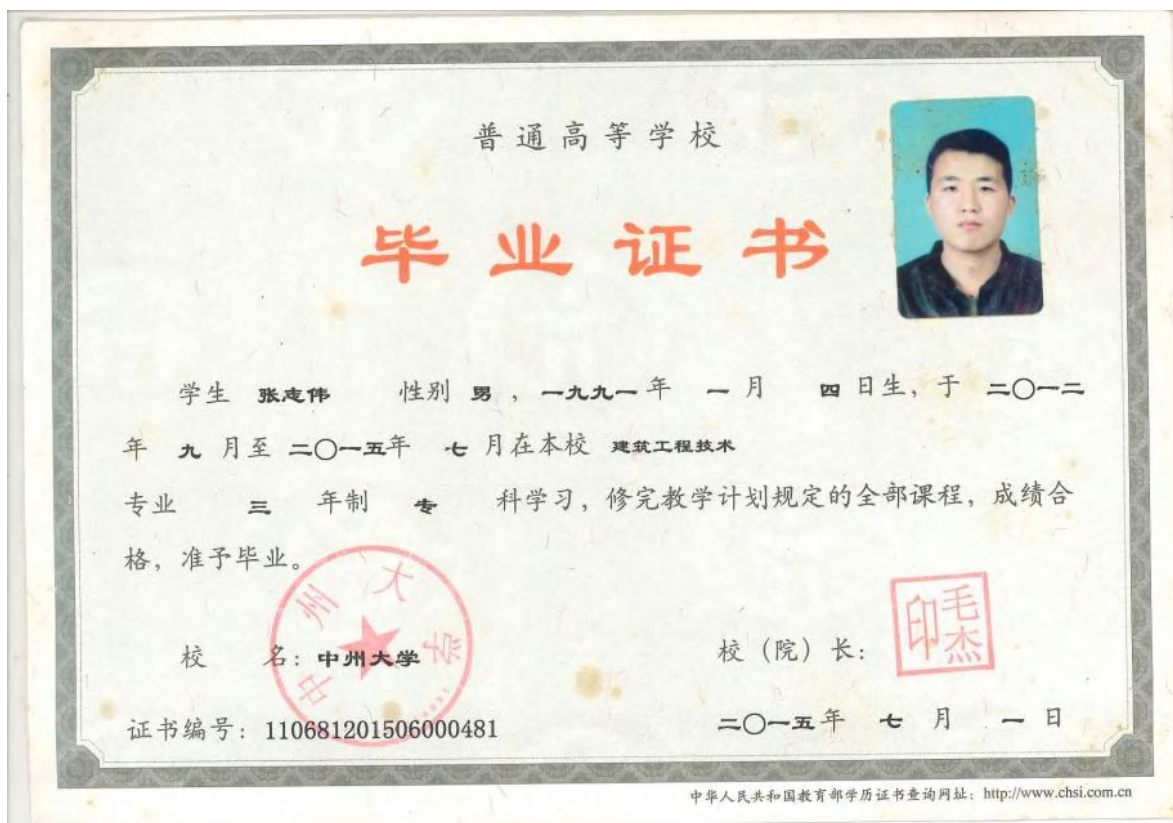 普通高等学校
毕业证书
学生 张志伟 性别 男 ，一九九一 年 一 月 四 日生，于 二〇一二
年 九 月至 二〇一五年 七 月在本校 建筑工程技术
专业 三 年制 专 科学习，修完教学计划规定的全部课程，成绩合
格，准予毕业。
中州大学
毛杰印
校 名：中州大学 校（院）长：
证书编号：110681201506000481 二〇一五年 七 月 一 日
中华人民共和国教育部学历证书查询网址：http://www.chsi.com.cn